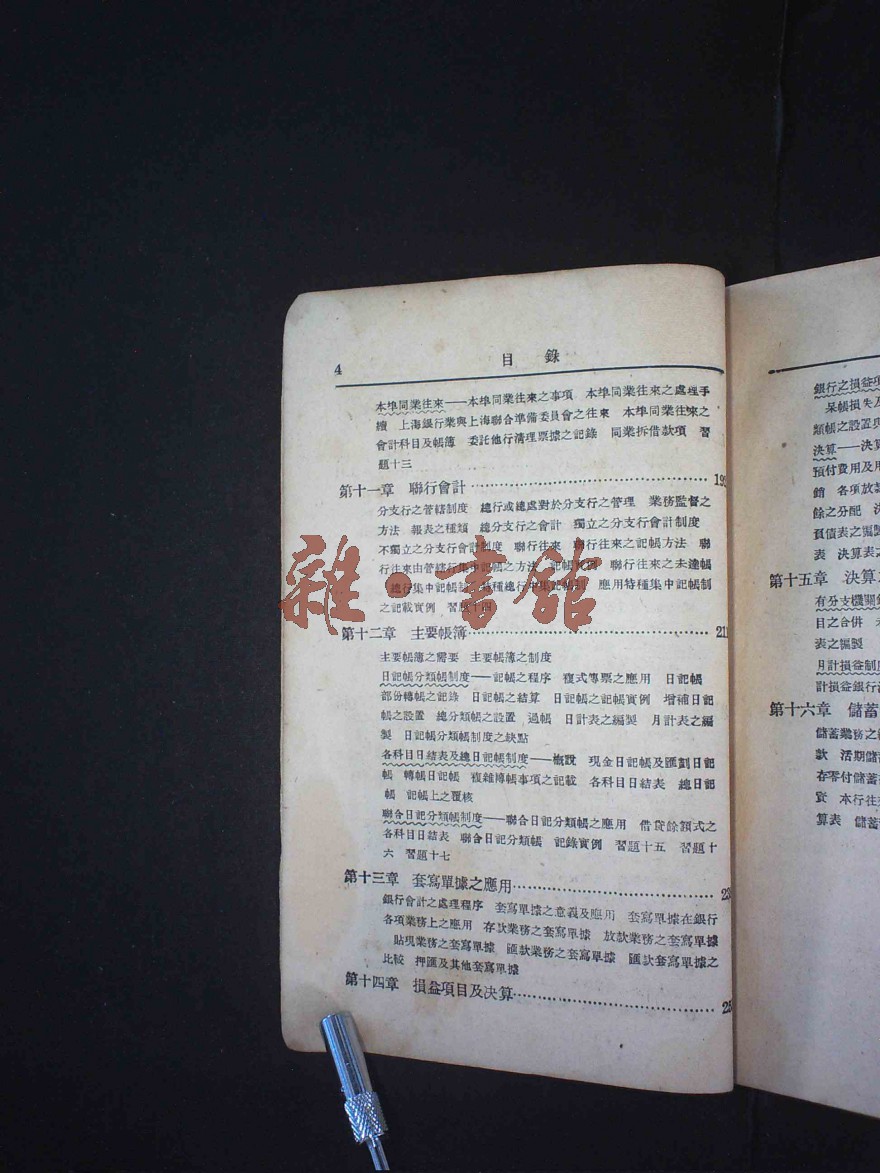 4
目 錄
本埠同業往來——本埠同業往來之事項 本埠同業往來之處理手
續 上海銀行業與上海聯合準備委員會之往來 本埠同業往來之
會計科目及帳簿 委託他行清理票據之記錄 同業拆借款項 習
題十三
第十一章 聯行會計 199
分支行之管轄制度 總行或總處對於分支行之管理 業務監督之
方法 報表之種類 總分支行之會計 獨立之分支行會計制度
不獨立之分支行會計制度 聯行往來 聯行往來之記帳方法 聯
行往來由管轄行集中記帳之方法 記帳實例 聯行往來之未達帳
總行集中記帳制 特種總行集中記帳制 應用特種集中記帳制
之記載實例 習題十四
第十二章 主要帳簿 211
主要帳簿之需要 主要帳簿之制度
日記帳分類帳制度——記帳之程序 複式專票之應用 日記帳
部份轉帳之記錄 日記帳之結算 日記帳之記帳實例 增補日記
帳之設置 總分類帳之設置 過帳 日計表之編製 月計表之編
製 日記帳分類帳制度之缺點
各科目日結表及總日記帳制度——概說 現金日記帳及匯劃日記
帳 轉帳日記帳 複雜轉帳事項之記載 各科目日結表 總日記
帳 記帳上之覆核
聯合日記分類帳制度——聯合日記分類帳之應用 借貸餘額式之
各科目日結表 聯合日記分類帳 記錄實例 習題十五 習題十
六 習題十七
第十三章 套寫單據之應用 23
銀行會計之處理程序 套寫單據之意義及應用 套寫單據在銀行
各項業務上之應用 存款業務之套寫單據 放款業務之套寫單據
貼現業務之套寫單據 匯款業務之套寫單據 匯款套寫單據之
比較 押匯及其他套寫單據
第十四章 損益項目及決算 25
銀行之損益項
呆帳損失及
類帳之設置及
決算——決算
預付費用及用
銷 各項放款
餘之分配 決
負債表之編製
表 決算表之
第十五章 決算
有分支機關
目之合併
表之編製
月計損益制度
計損益銀行
第十六章 儲蓄
儲蓄業務之
款 活期儲蓄
存零付儲蓄
實 本行往
算表 儲蓄
雜·書館